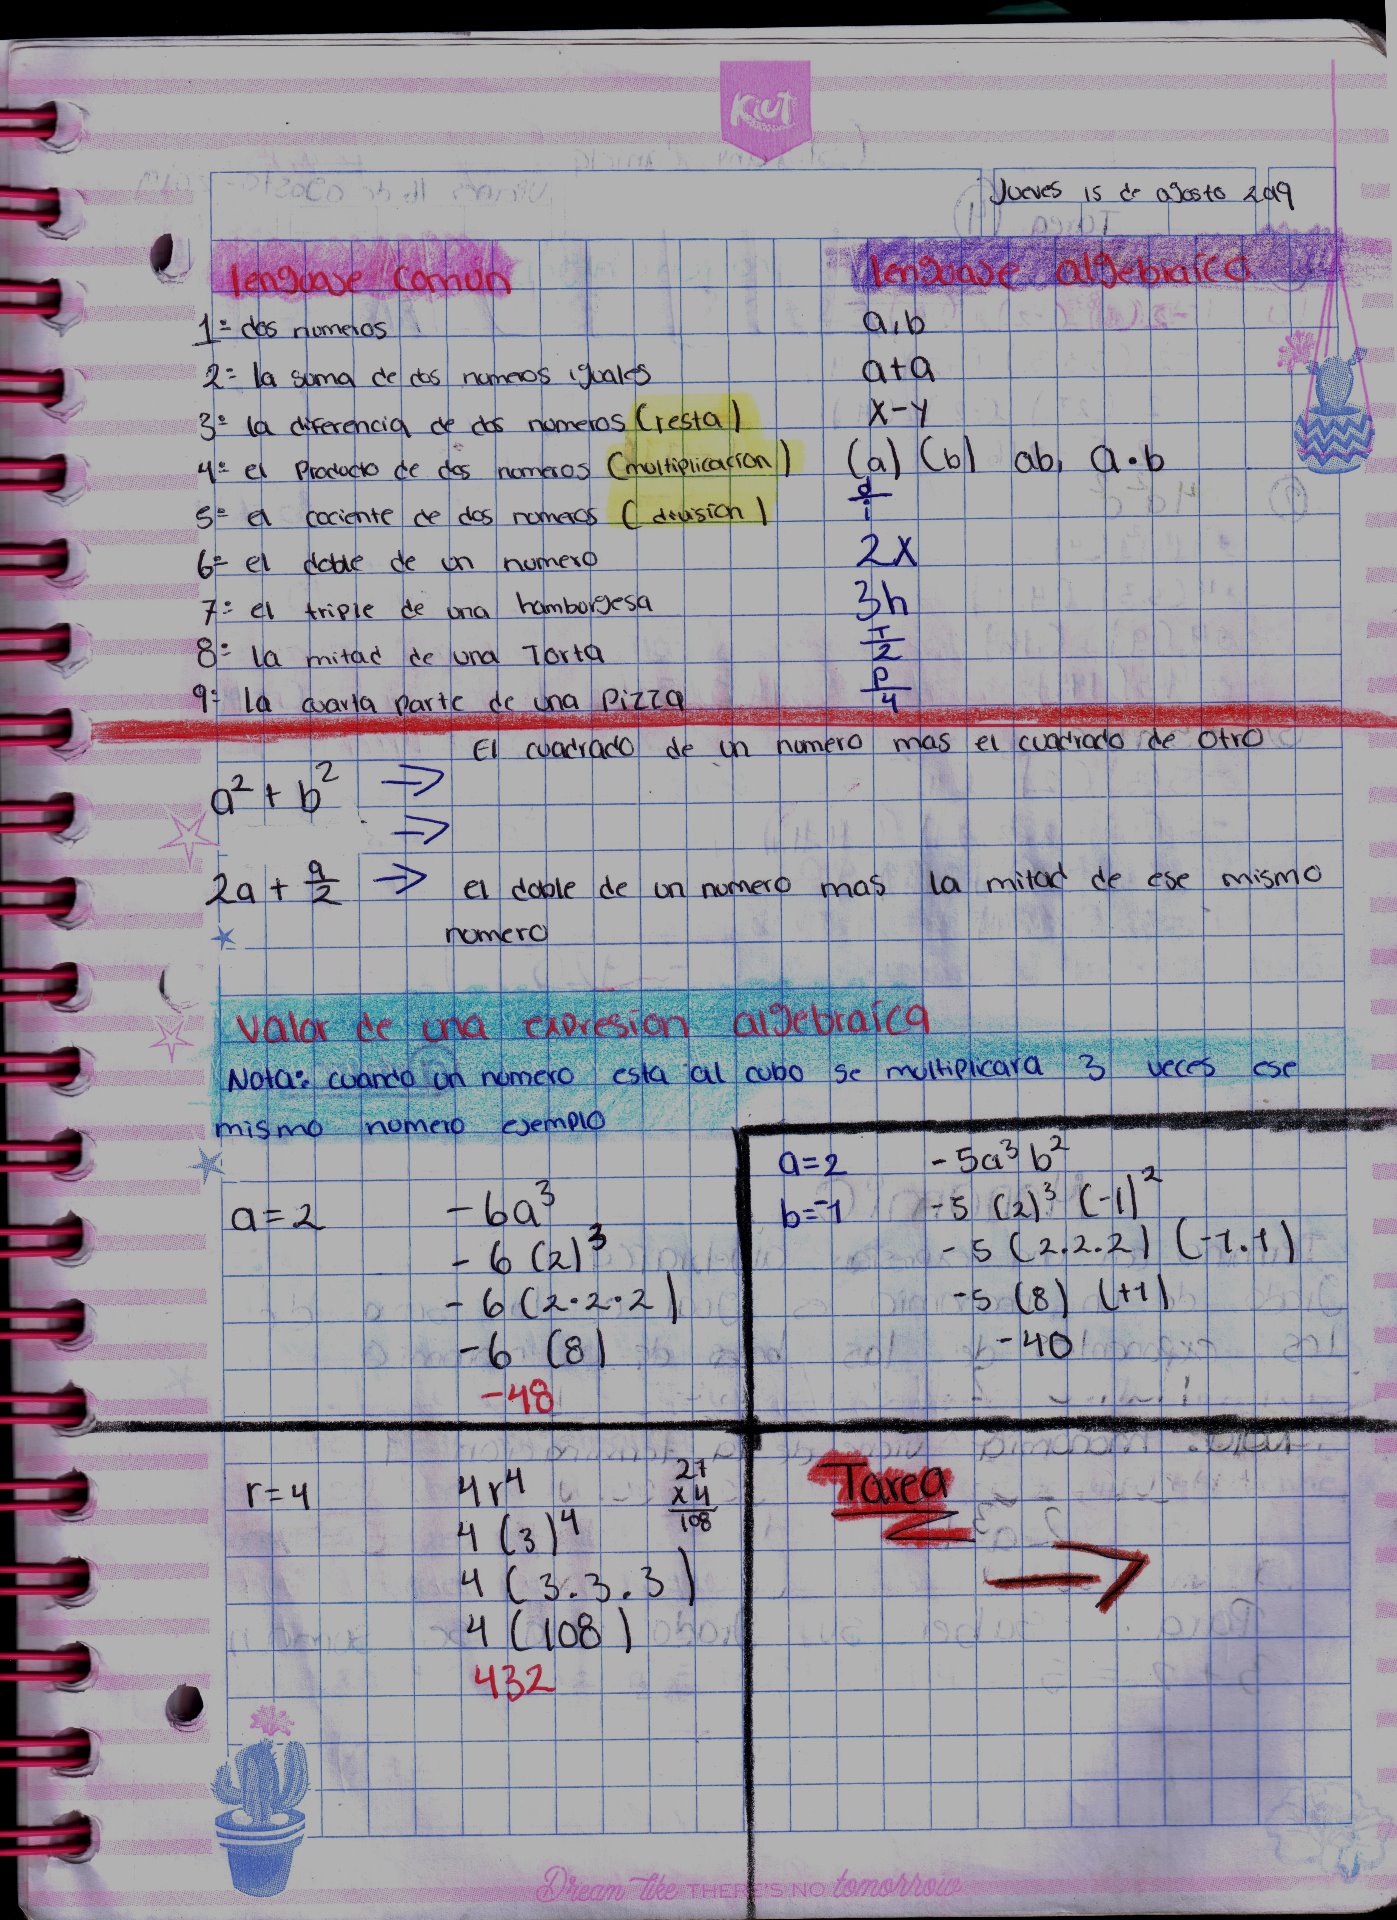 Kiut
Jueves 15 de agosto 2019
lenguaje comun
lenguaje algebraico
1= dos numeros a,b
2= la suma de dos numeros iguales a+a
3= la diferencia de dos numeros (resta) x-y
4= el Producto de dos numeros (multiplicacion) (a) (b) ab, a·b
5= el cociente de dos numeros (division) d/i
6= el doble de un numero 2x
7= el triple de una hamburgesa 3h
8= la mitad de una Torta T/2
9= la cuarta parte de una pizza P/4
El cuadrado de un numero mas el cuadrado de otro
a² + b² →
→
2a + a/2 → el doble de un numero mas la mitad de ese mismo
numero
Valor de una expresion algebraica
Nota: cuando un numero esta al cubo se multiplicara 3 veces ese
mismo numero ejemplo
a=2 -6a³
-6 (2)³
-6 (2·2·2)
-6 (8)
-48
a=2 -5a³ b²
b=-1 -5 (2)³ (-1)²
-5 (2·2·2) (-1·1)
-5 (8) (+1)
-40
r=4 4r⁴
4 (3)⁴
4 (3·3·3)
4 (108)
432
27
x4
108
Tarea
Dream like THERE'S NO tomorrow